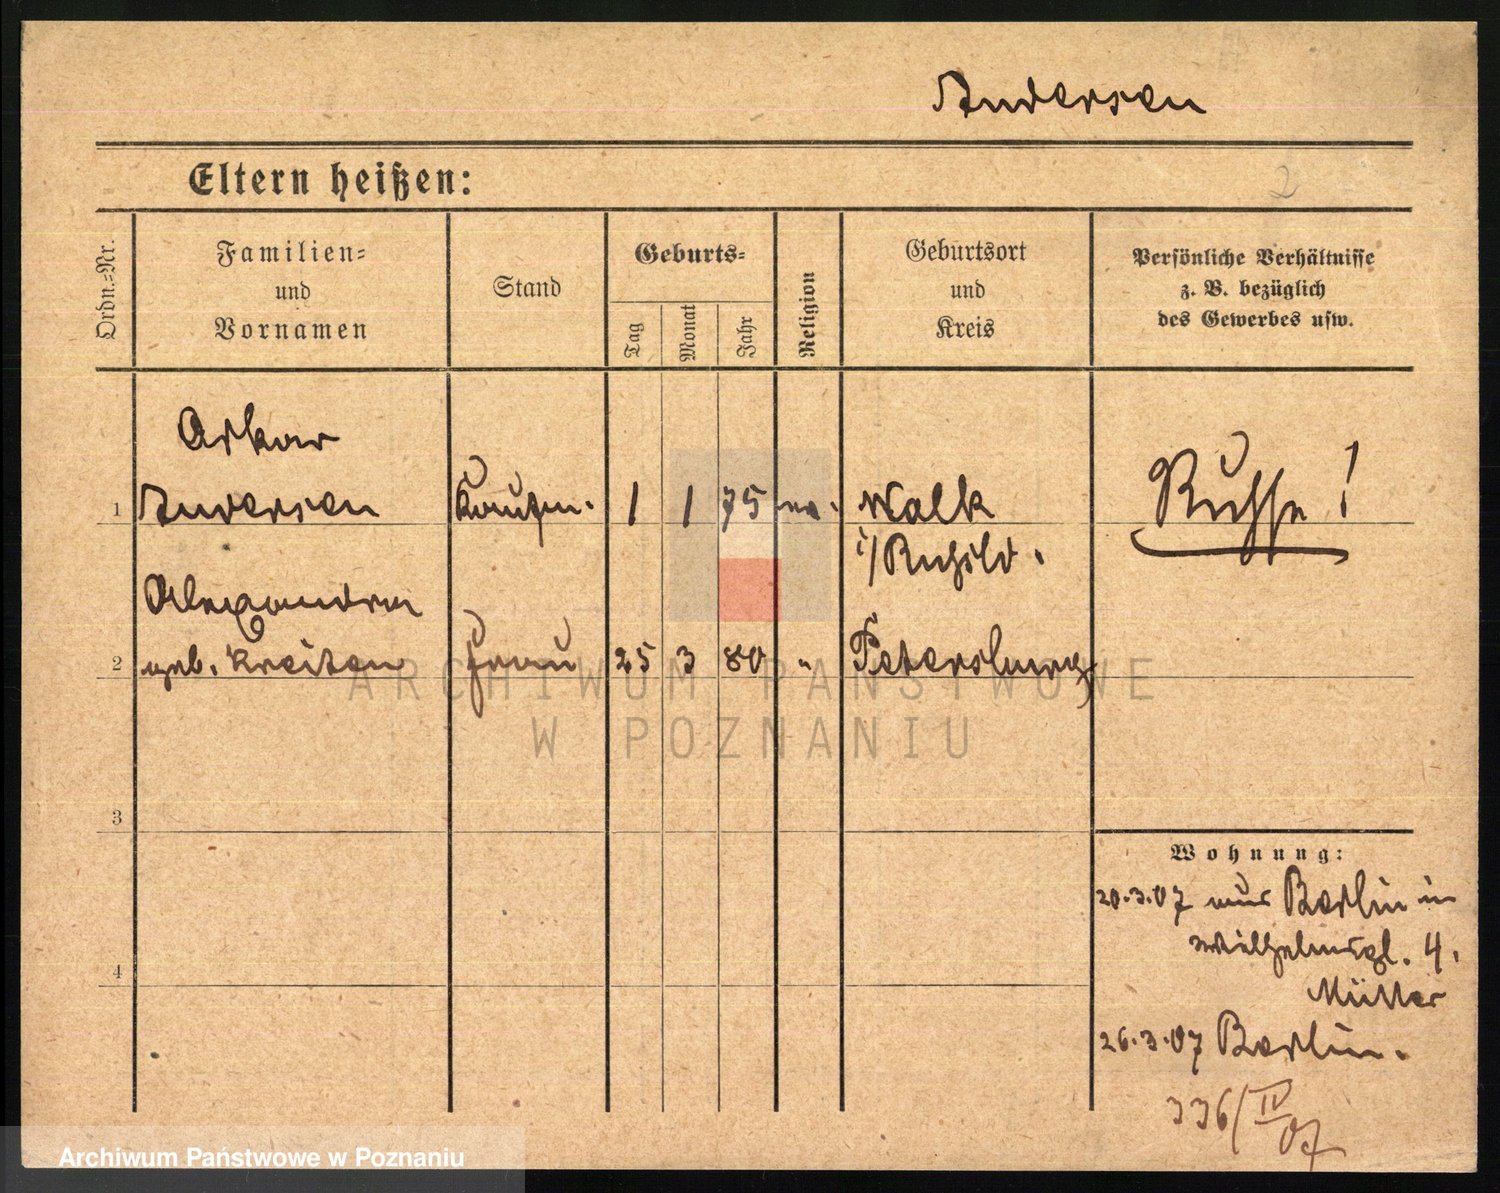 Andersen
Eltern heißen:
2
Ordn.-Nr.
Familien-
und
Vornamen
Stand
Geburts-
Tag
Monat
Jahr
Religion
Geburtsort
und
Kreis
Persönliche Verhältnisse
z. B. bezüglich
des Gewerbes usw.
Oskar
1 Andersen Kaufm. 1 1 75 ev. Walk
i/Rußld.
Russe!
Alexandra
2 geb. Kreisten Frau 25 3 80 " Petersburg
ARCHIWUM PAŃSTWOWE
W POZNANIU
3
4
Wohnung:
20.3.07 aus Berlin in
Wilhelmspl. 4.
Müller
26.3.07 Berlin.
336/IV 07
Archiwum Państwowe w Poznaniu